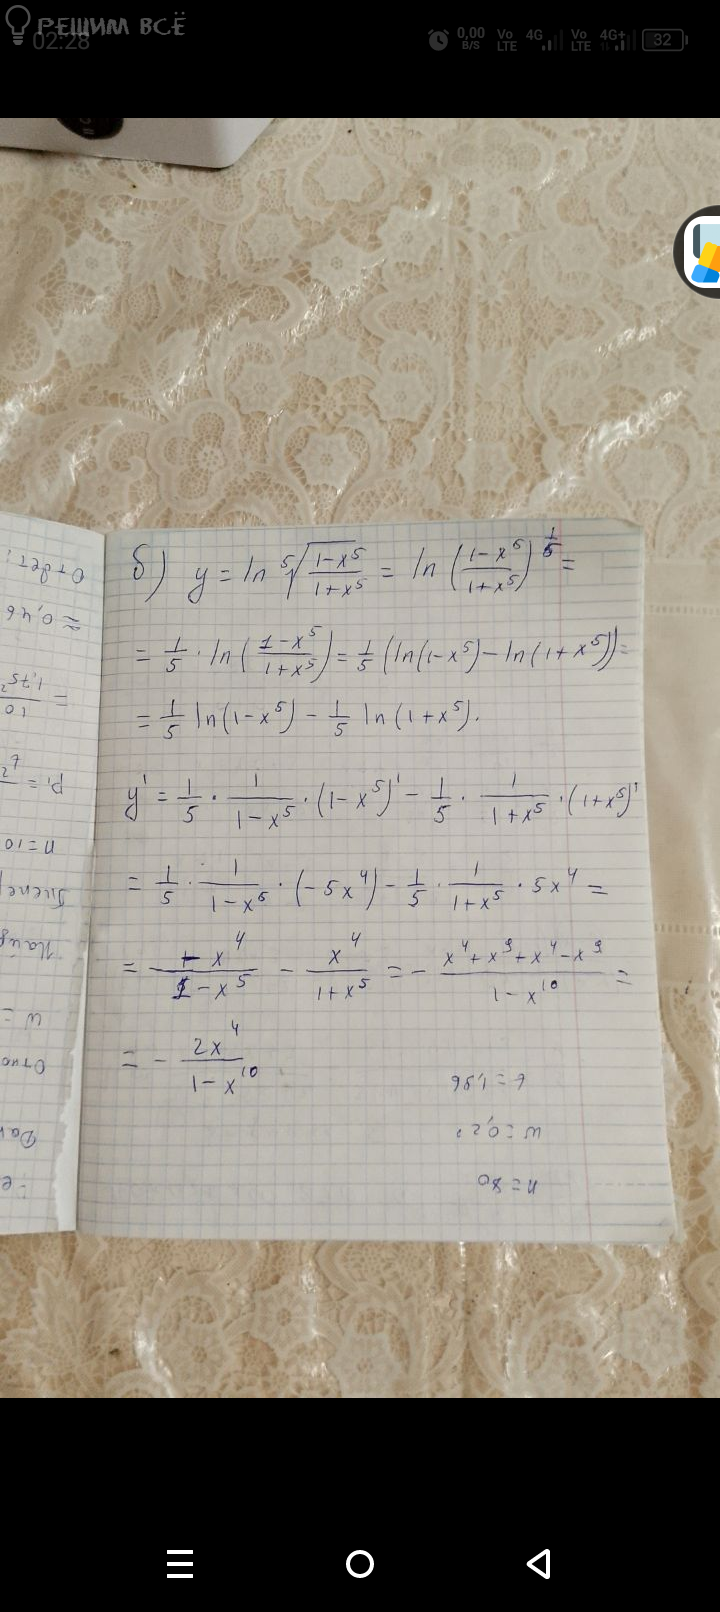 РЕШИМ ВСЁ
02:28
0,00 B/S Vo LTE 4G Vo LTE 4G+ 32
б) y = ln ⁵√((1-x⁵)/(1+x⁵)) = ln ((1-x⁵)/(1+x⁵))^(1/5) =
= 1/5 · ln((1-x⁵)/(1+x⁵)) = 1/5 (ln(1-x⁵) - ln(1+x⁵)) =
= 1/5 ln(1-x⁵) - 1/5 ln(1+x⁵).
y' = 1/5 · 1/(1-x⁵) · (1-x⁵)' - 1/5 · 1/(1+x⁵) · (1+x⁵)'
= 1/5 · 1/(1-x⁵) · (-5x⁴) - 1/5 · 1/(1+x⁵) · 5x⁴ =
= (-x⁴)/(1-x⁵) - x⁴/(1+x⁵) = - (x⁴+x⁹+x⁴-x⁹)/(1-x¹⁰) =
= - 2x⁴/(1-x¹⁰)
t = 1,96
n = 80
Ответ:
≈ 0,46
n = 10
w =